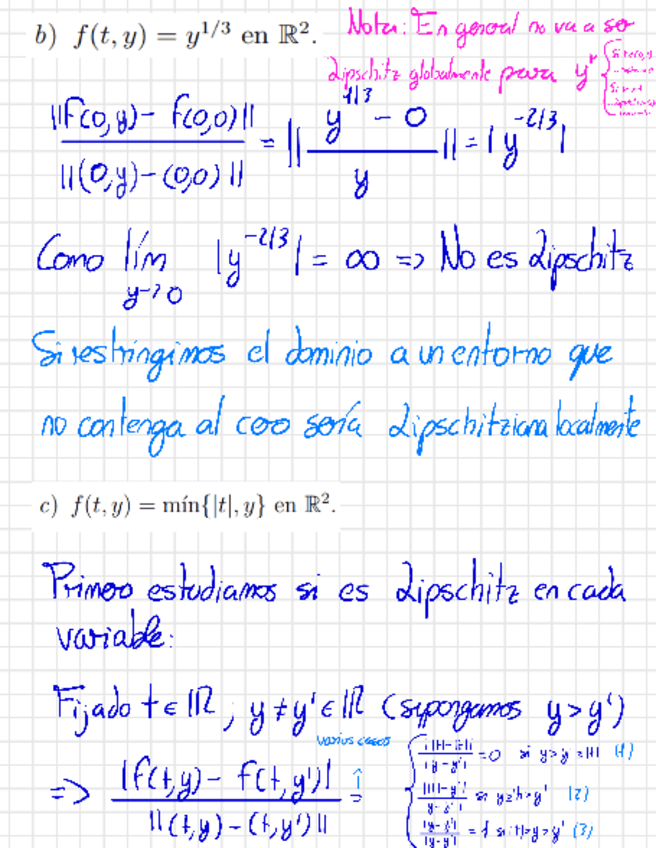 b) f(t, y) = y^{1/3} en ℝ².
Nota: En general no va a ser
Lipschitz globalmente para y^r
||f(0,y) - f(0,0)|| / ||(0,y) - (0,0)|| = || (y^{1/3} - 0) / y || = |y^{-2/3}|
Como lím_{y→0} |y^{-2/3}| = ∞ => No es Lipschitz
Si restringimos el dominio a un entorno que
no contenga al cero sería Lipschitziana localmente
c) f(t, y) = mín{|t|, y} en ℝ².
Primero estudiamos si es Lipschitz en cada
variable:
Fijado t ∈ ℝ, y ≠ y' ∈ ℝ (supongamos y > y')
varios casos
=> |f(t,y) - f(t,y')| / ||(t,y) - (t,y')|| =
= 0 si (1)
(2)
|y-y'| / |y-y'| = 1 si |t|>y>y' (3)